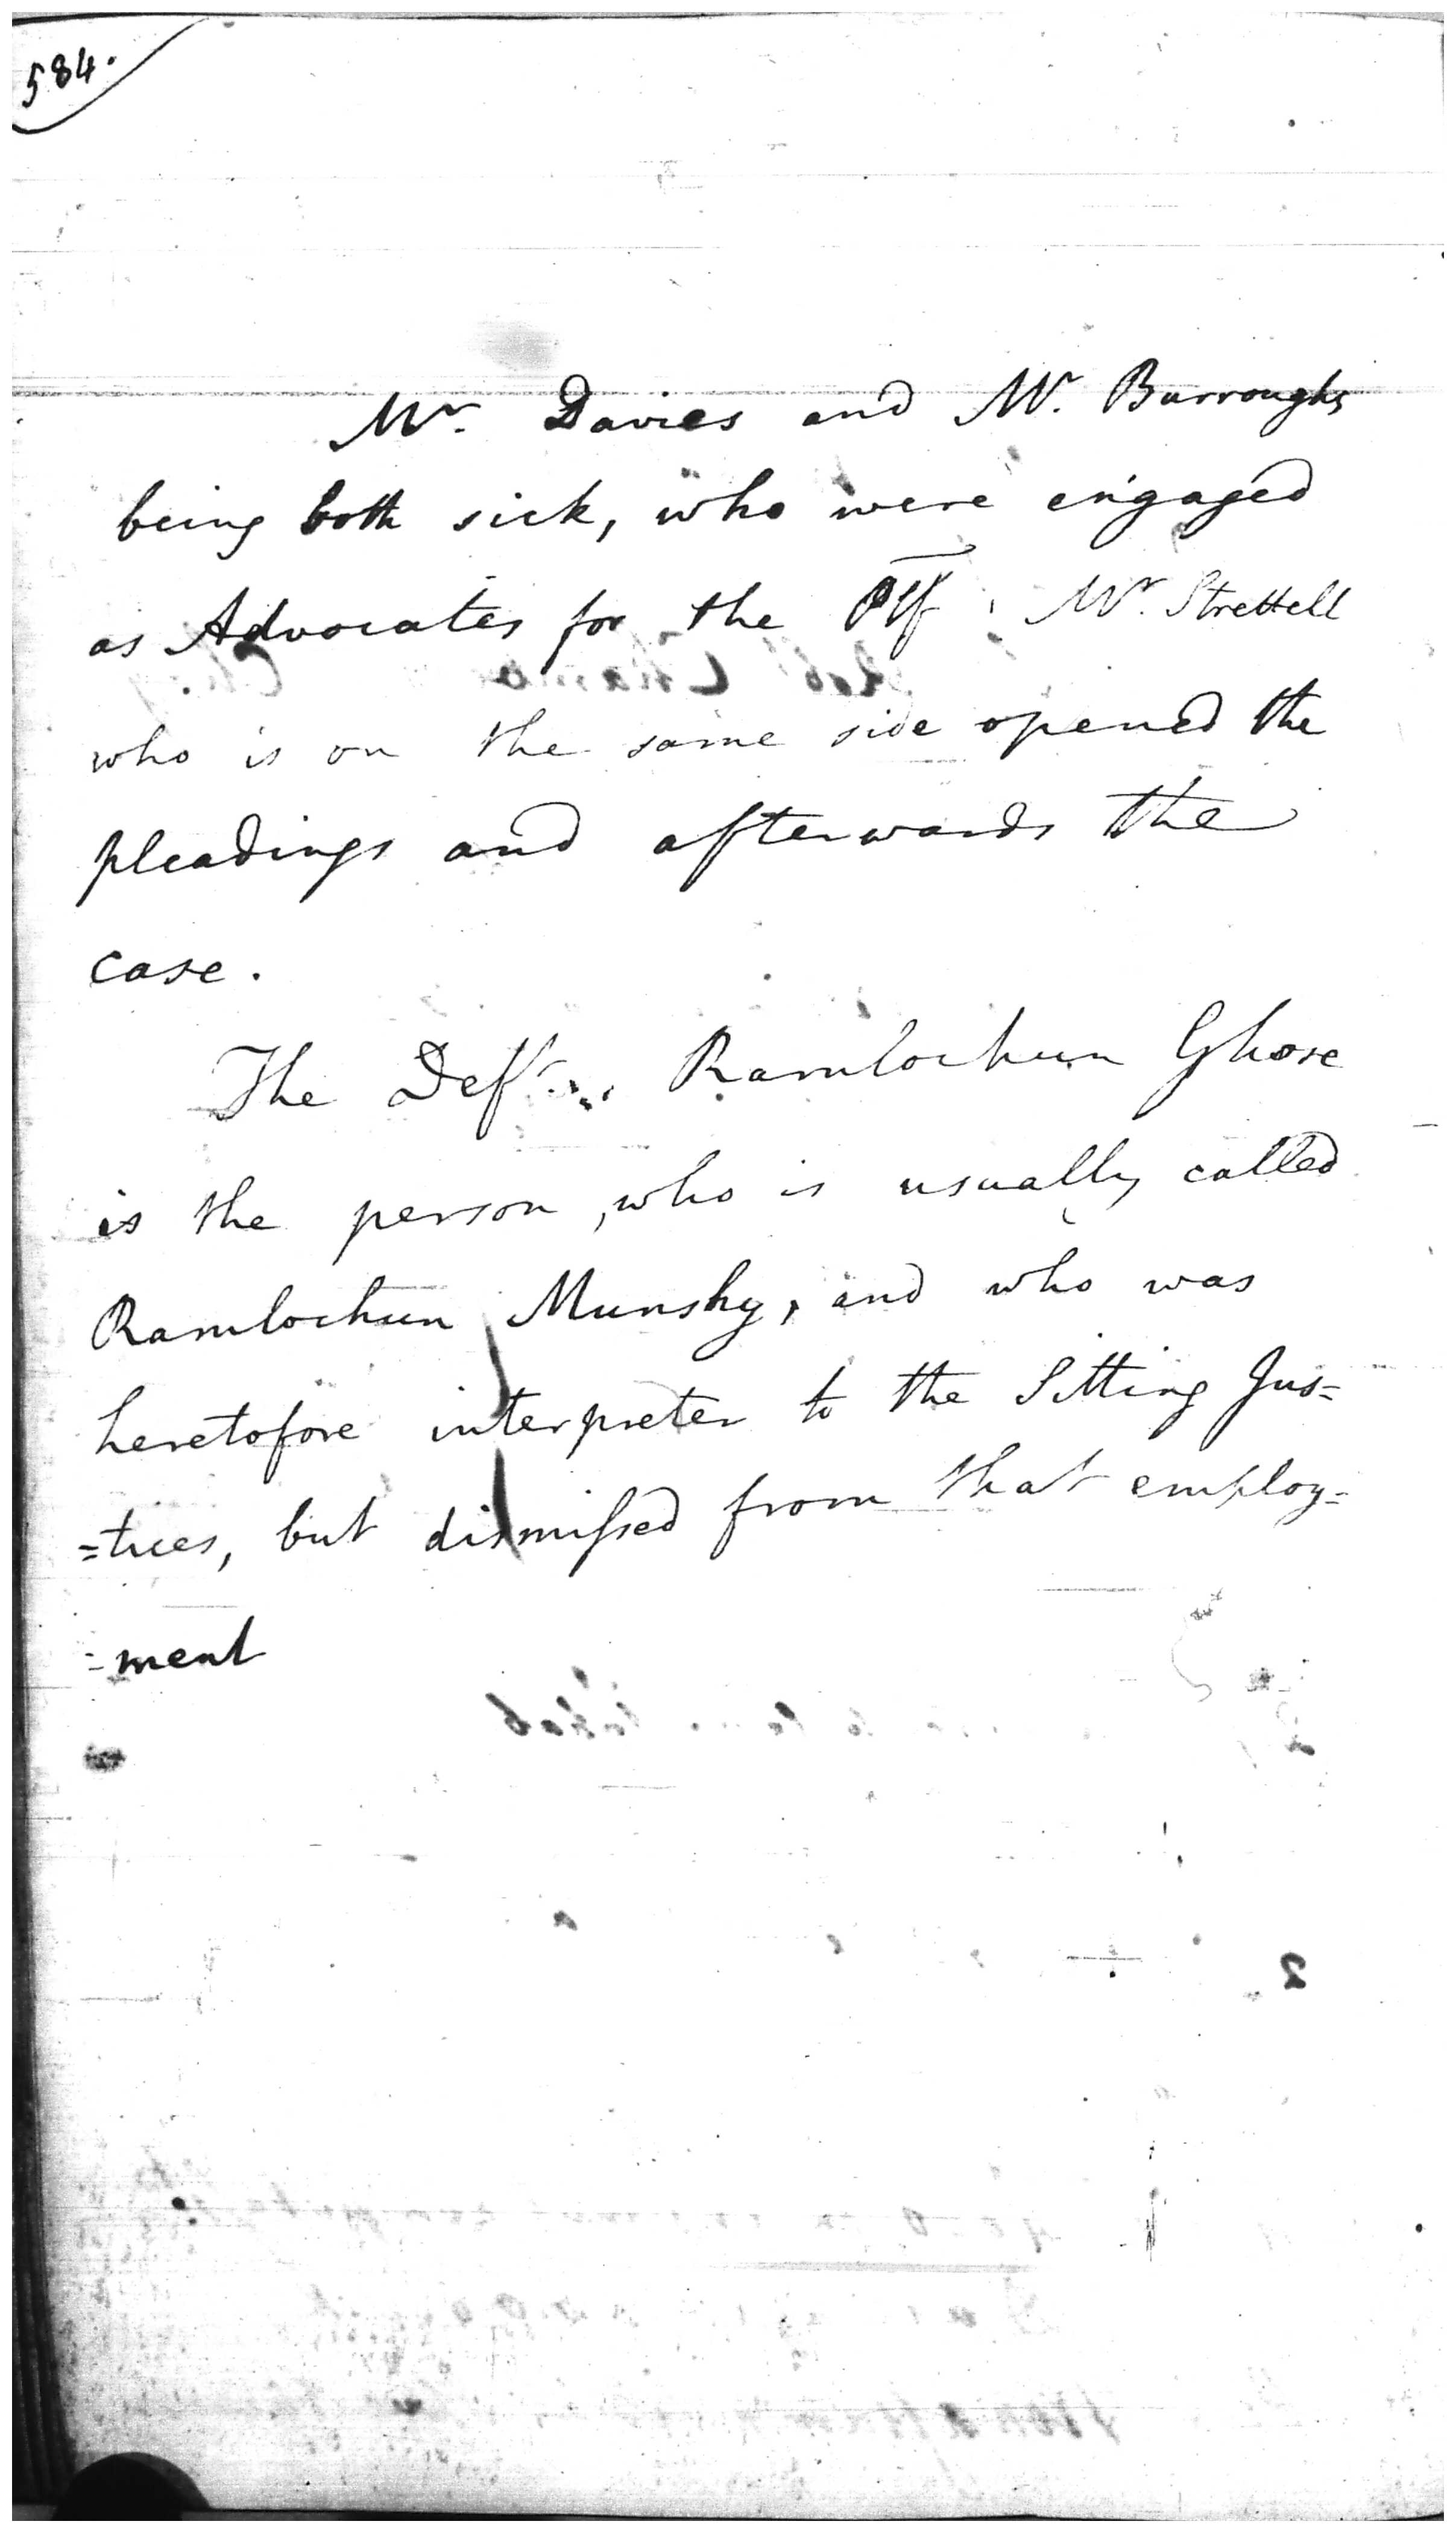 584.
Mr. Davies and Mr. Burroughs
being both sick, who were engaged
as Advocates for the Plf, Mr. Strettell
who is on the same side opened the
pleadings and afterwards the
case.
The Deft. Ramlochun Ghose
is the person, who is usually called
Ramlochun Munshy, and who was
heretofore interpreter to the Sitting Jus=
=tices, but dismissed from that employ=
=ment